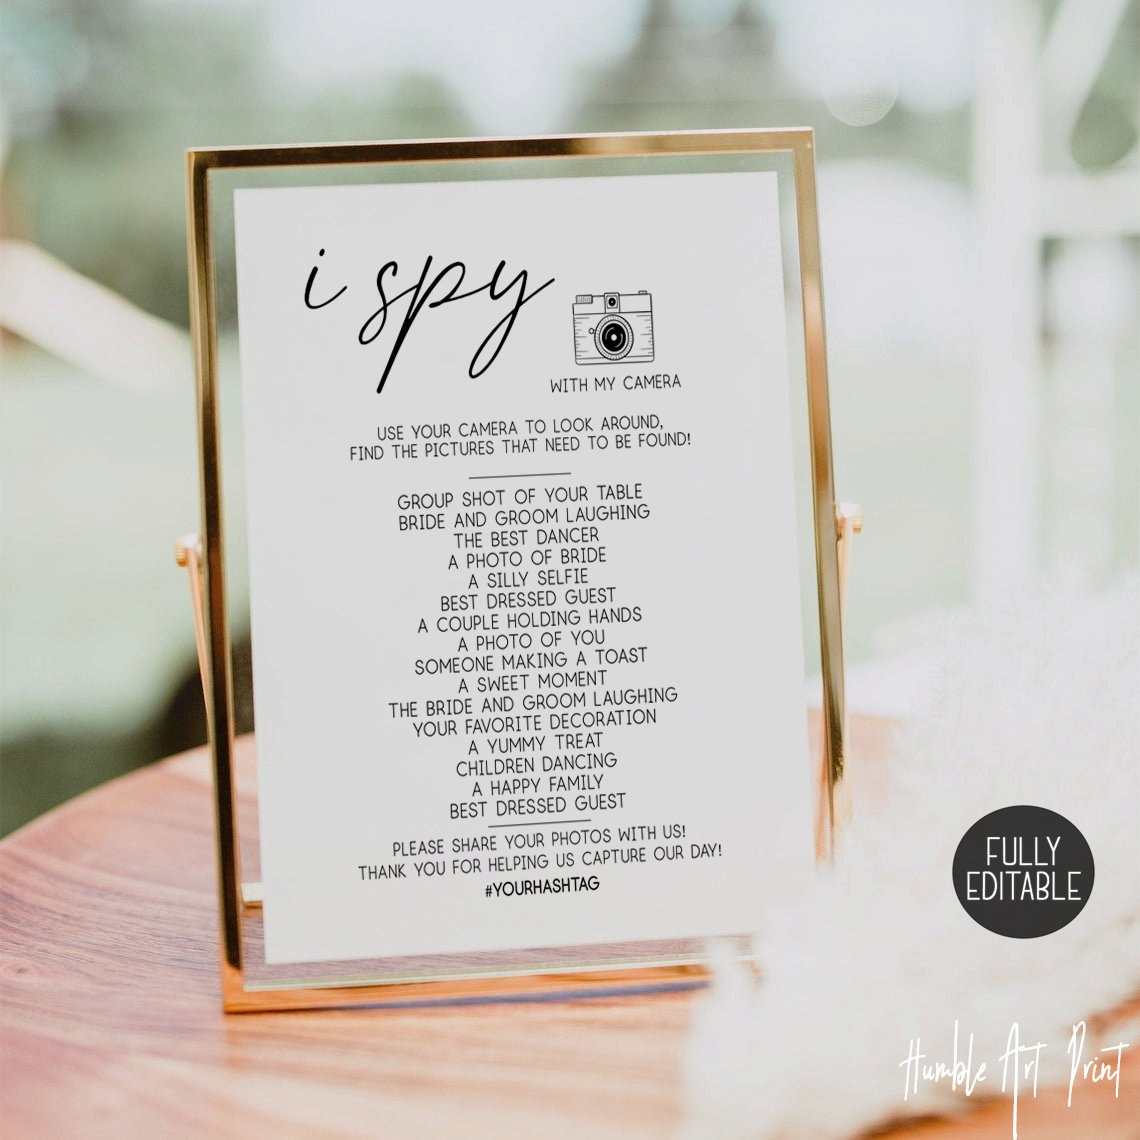 i spy
WITH MY CAMERA
USE YOUR CAMERA TO LOOK AROUND,
FIND THE PICTURES THAT NEED TO BE FOUND!
GROUP SHOT OF YOUR TABLE
BRIDE AND GROOM LAUGHING
THE BEST DANCER
A PHOTO OF BRIDE
A SILLY SELFIE
BEST DRESSED GUEST
A COUPLE HOLDING HANDS
A PHOTO OF YOU
SOMEONE MAKING A TOAST
A SWEET MOMENT
THE BRIDE AND GROOM LAUGHING
YOUR FAVORITE DECORATION
A YUMMY TREAT
CHILDREN DANCING
A HAPPY FAMILY
BEST DRESSED GUEST
PLEASE SHARE YOUR PHOTOS WITH US!
THANK YOU FOR HELPING US CAPTURE OUR DAY!
#YOURHASHTAG
FULLY
EDITABLE
Humble Art Print